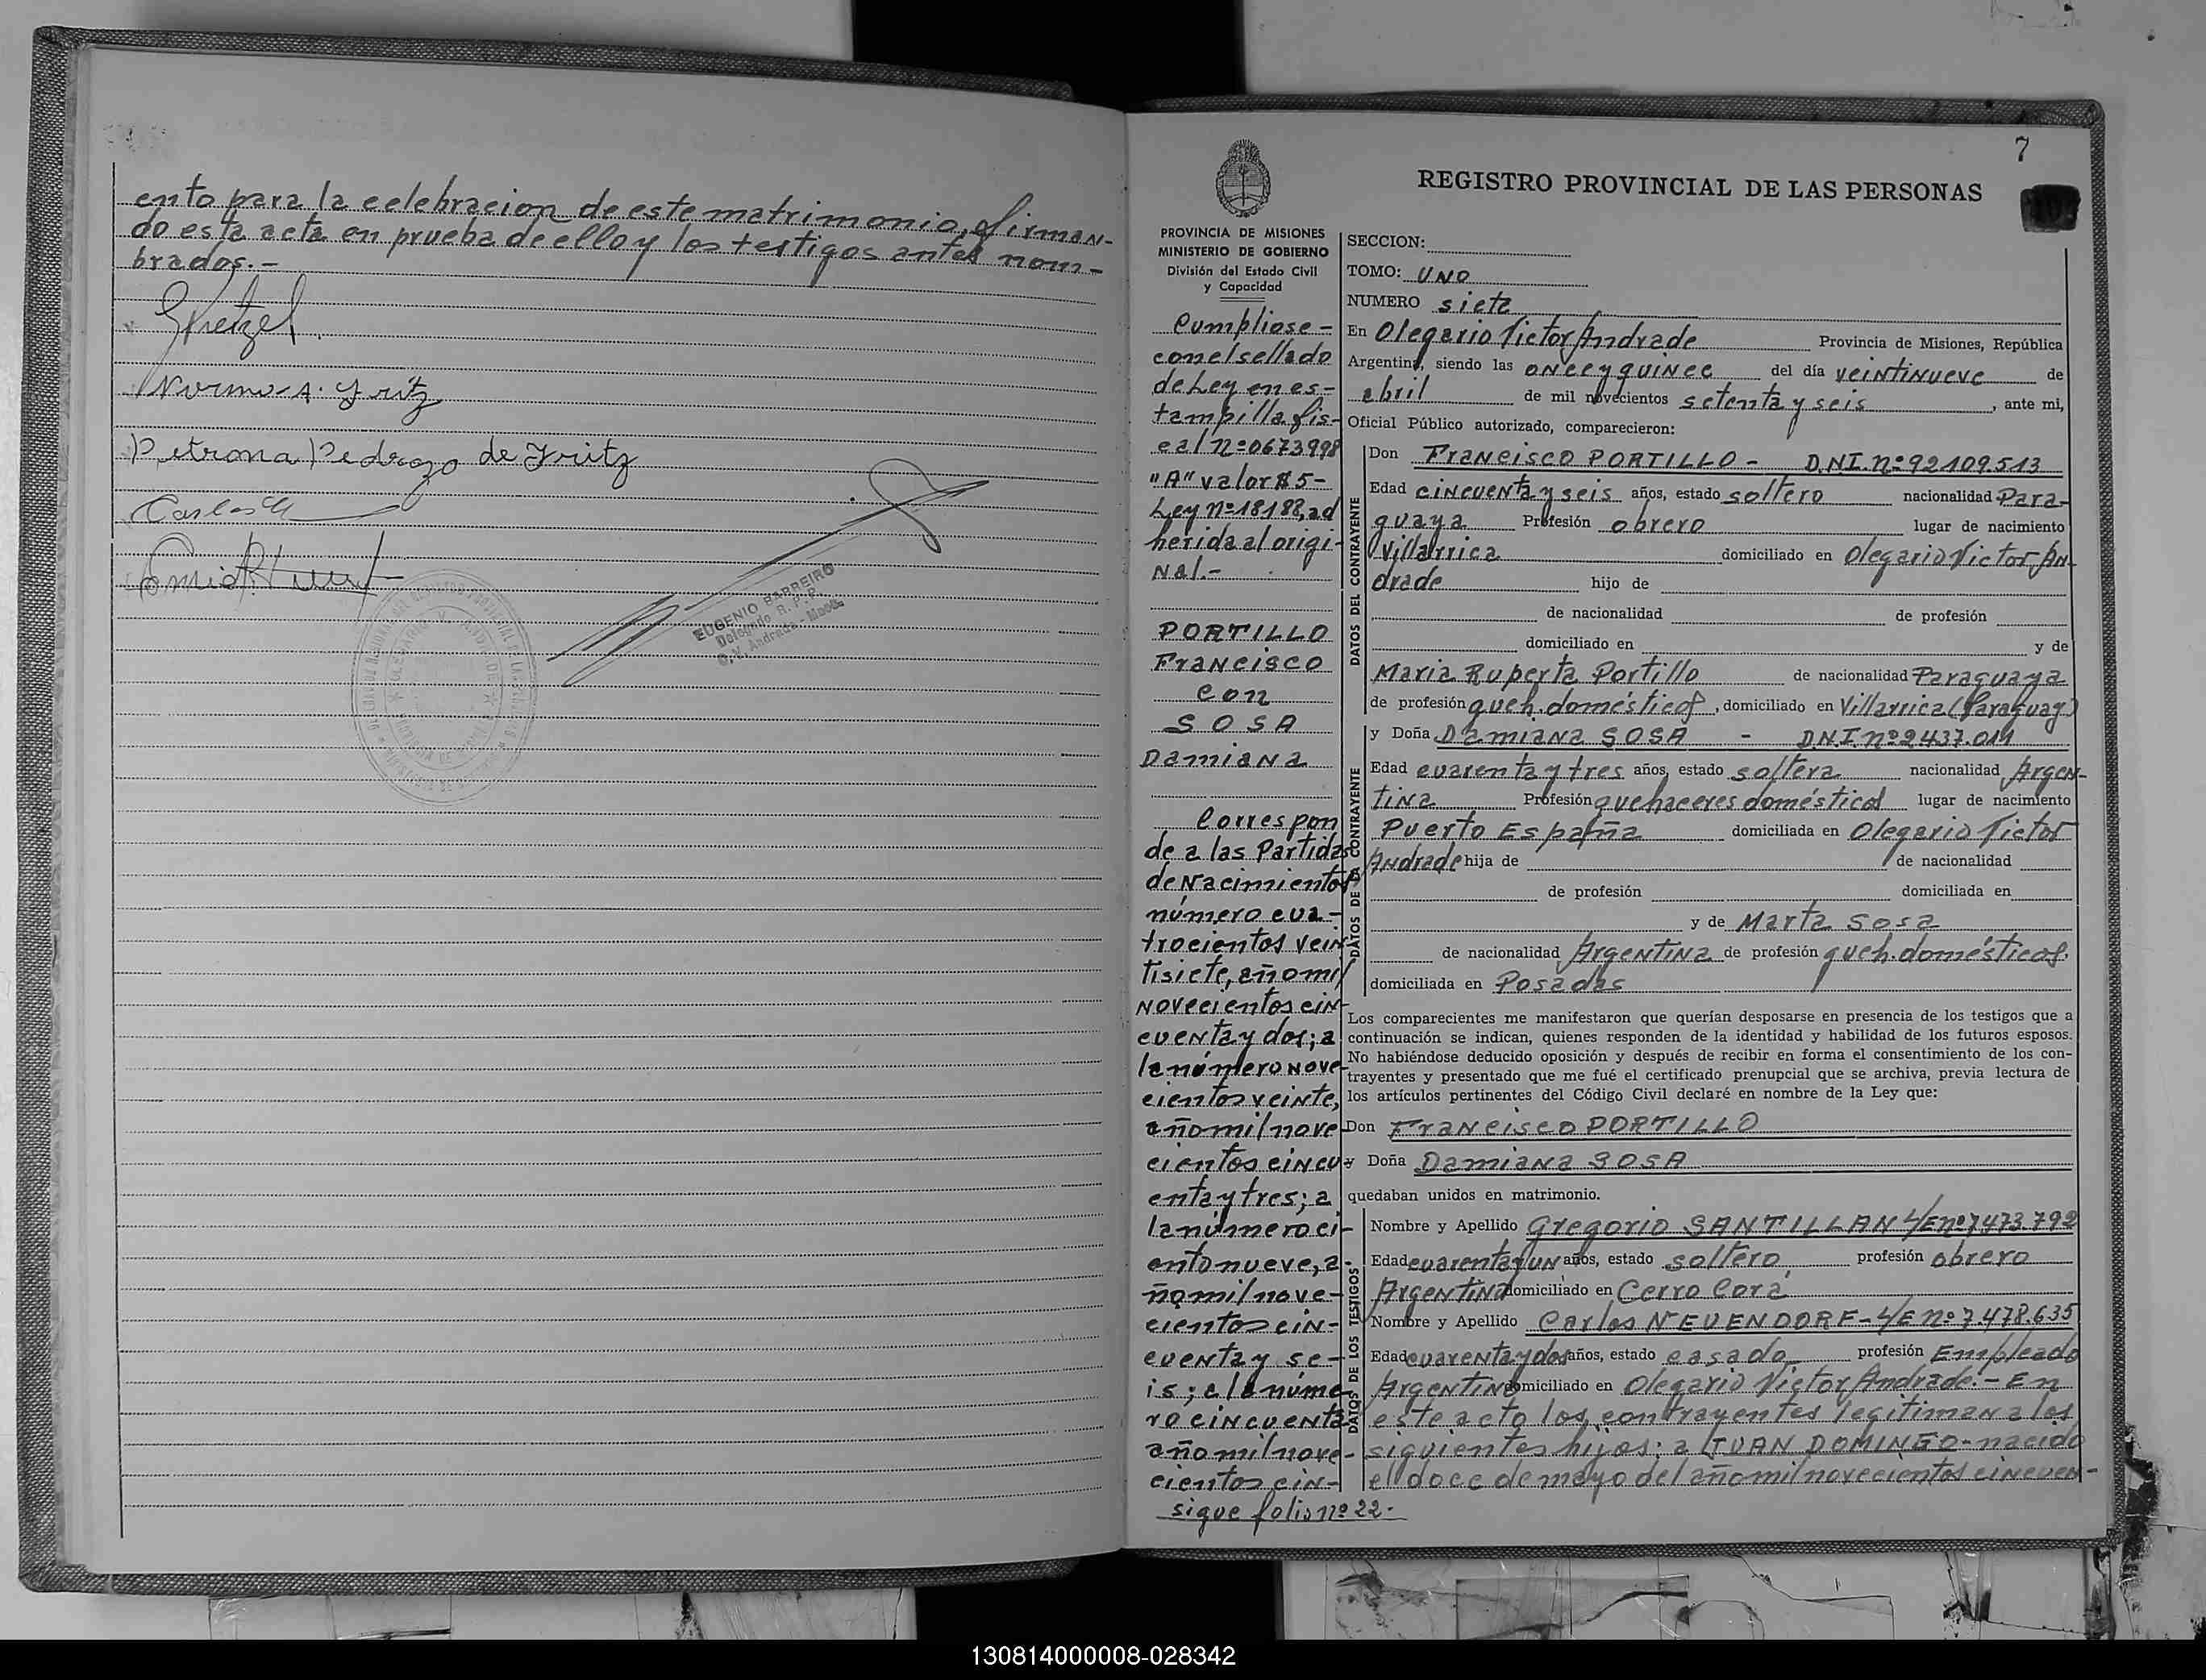 ento para la celebracion de este matrimonio, firman-
do esta acta en prueba de ello y los testigos antes nom-
brados.-
Norma A. Fritz
Petrona Pedrozo de Fritz
Carlos
EUGENIO BARREIRO
Delegado R. P. P.
O. V. Andrade - Mnes.
7
REGISTRO PROVINCIAL DE LAS PERSONAS
PROVINCIA DE MISIONES
MINISTERIO DE GOBIERNO
División del Estado Civil
y Capacidad
Cumpliose-
con el sellado
de Ley en es-
tampilla fis-
cal nº 0673998
"A" valor $5-
Ley nº 18188, ad
herida al origi-
nal.-
PORTILLO
Francisco
con
SOSA
Damiana
Correspon
de a las Partidas
de Nacimientos
número cua-
trocientos vein
tisiete, año mil
novecientos cin-
cuenta y dos; a
la número nove-
cientos veinte,
año mil nove-
cientos cincu-
enta y tres; a
la número ci-
ento nueve, a-
ño mil nove-
cientos cin-
cuenta y se-
is; a la núme-
ro cincuenta
año mil nove-
cientos cin-
sigue folio nº 22-
SECCION:
TOMO: UNO
NUMERO siete
En Olegario Victor Andrade Provincia de Misiones, República
Argentina, siendo las once y quince del día veintinueve de
abril de mil novecientos setenta y seis, ante mi,
Oficial Público autorizado, comparecieron:
DATOS DEL CONTRAYENTE
Don Francisco PORTILLO- D.N.I. nº 92109513
Edad cincuenta y seis años, estado soltero nacionalidad Para-
guaya Profesión obrero lugar de nacimiento
Villarrica domiciliado en Olegario Victor An-
drade hijo de
de nacionalidad de profesión
domiciliado en y de
Maria Ruperta Portillo de nacionalidad Paraguaya
de profesión queh. domésticos, domiciliado en Villarrica (Paraguay)
DATOS DE LA CONTRAYENTE
y Doña Damiana SOSA - D.N.I. nº 2.437.011
Edad cuarenta y tres años, estado soltera nacionalidad Argen-
tina Profesión quehaceres domésticos lugar de nacimiento
Puerto España domiciliada en Olegario Victor
Andrade hija de de nacionalidad
de profesión domiciliada en
y de Marta Sosa
de nacionalidad Argentina de profesión queh. domésticos.
domiciliada en Posadas
Los comparecientes me manifestaron que querían desposarse en presencia de los testigos que a
continuación se indican, quienes responden de la identidad y habilidad de los futuros esposos.
No habiéndose deducido oposición y después de recibir en forma el consentimiento de los con-
trayentes y presentado que me fué el certificado prenupcial que se archiva, previa lectura de
los artículos pertinentes del Código Civil declaré en nombre de la Ley que:
Don Francisco PORTILLO
y Doña Damiana SOSA
quedaban unidos en matrimonio.
DATOS DE LOS TESTIGOS
Nombre y Apellido Gregorio SANTILLAN L/E nº 7473.792
Edad cuarenta y un años, estado soltero profesión obrero
Argentino domiciliado en Cerro Corá
Nombre y Apellido Carlos NEUENDORF- L/E nº 7.478.635
Edad cuarenta y dos años, estado casado profesión Empleado
Argentino domiciliado en Olegario Victor Andrade.- En
este acto los contrayentes legitiman a los
siguientes hijos: a JUAN DOMINGO- nacido
el doce de mayo del año mil novecientos cincuen-
130814000008-028342